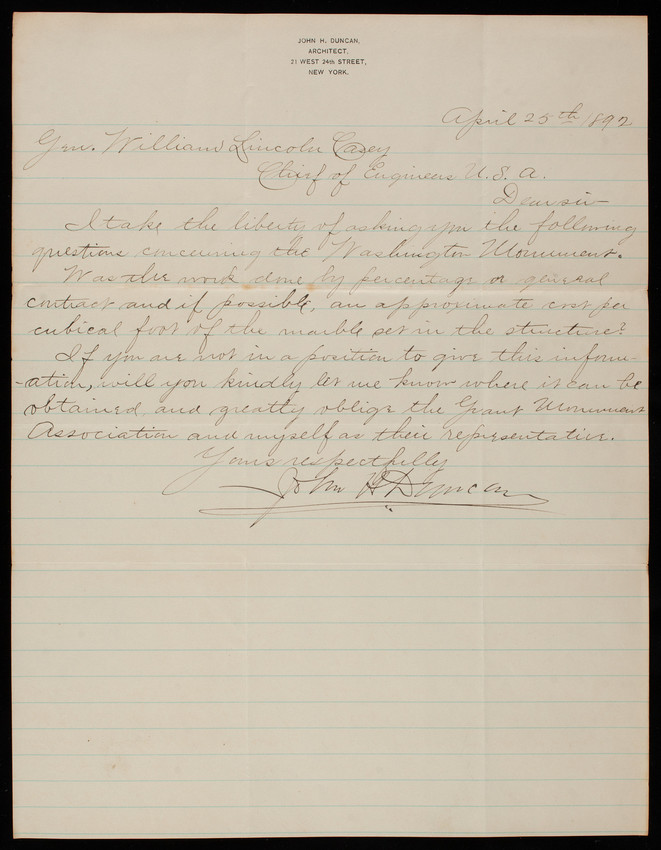 JOHN H. DUNCAN,
ARCHITECT,
21 WEST 24th STREET,
NEW YORK.
April 25th 1892
Gen. William Lincoln Casey
Chief of Engineers U.S.A.
Dear sir—
I take the liberty of asking you the following
questions concerning the Washington Monument.
Was the work done by percentage or general
contract and if possible, an approximate cost per
cubical foot of the marble set in the structure?
If you are not in a position to give this inform-
-ation, will you kindly let me know where it can be
obtained and greatly oblige the Grant Monument
Association and myself as their representative.
Yours respectfully
John H Duncan